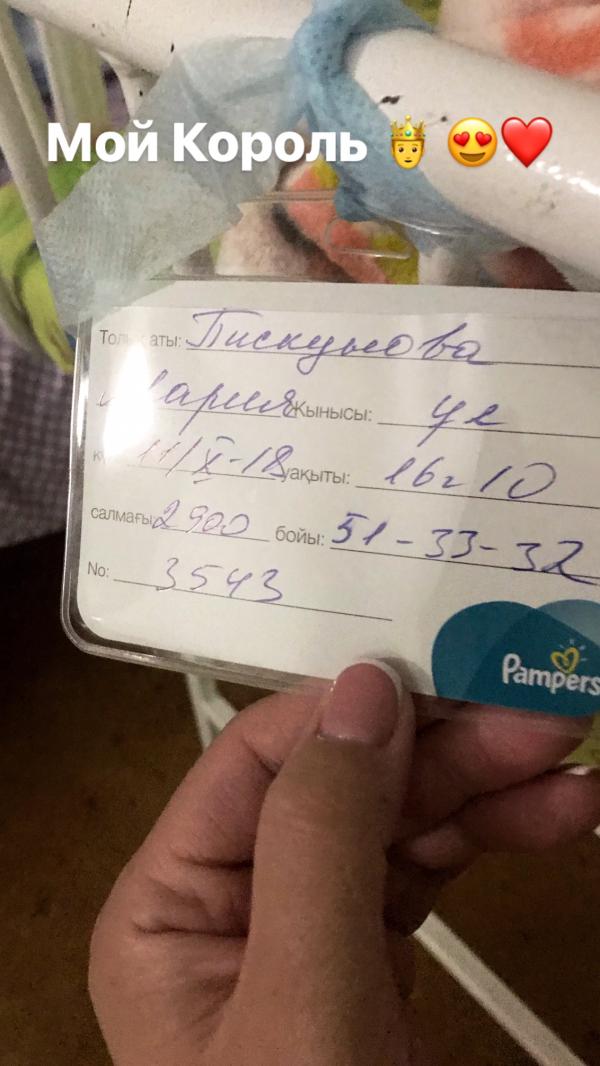 Мой Король 🤴 😍❤️
Толық аты: Пискунова
Мария Жынысы: ул
11/X-18 уақыты: 16 10
салмағы: 2900 бойы: 51-33-32
No: 3543
Pampers